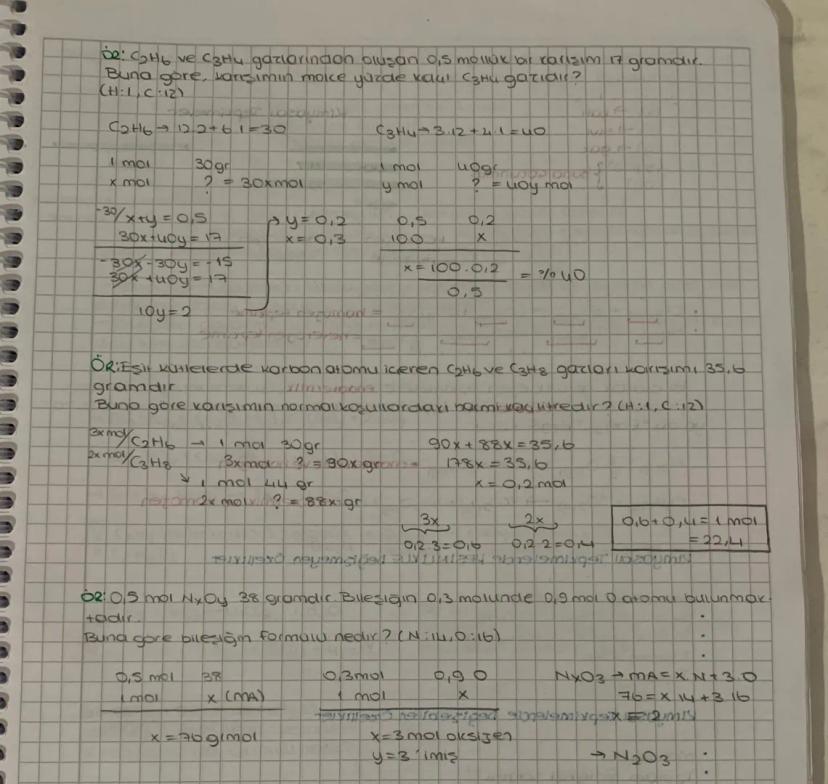 ÖR: C2H6 ve C3H4 gazlarından oluşan 0,5 mollük bir karışım 17 gramdır.
Buna göre, karışımın molce yüzde kaçı C3H4 gazıdır?
(H:1, C:12)
C2H6 → 12.2+6.1=30
C3H4 → 3.12+4.1=40
1 mol 30gr
x mol ? = 30xmol
1 mol 40gr
y mol ? = 40y mol
-30/ x+y = 0,5
30x+40y = 17
-30x-30y = -15
30x+40y = 17
10y = 2
→ y = 0,2
x = 0,3
0,5 0,2
100 x
x = 100.0,2 = %40
0,5
ÖR: Eşit kütlelerde karbon atomu içeren C2H6 ve C3H8 gazları karışımı 35,6
gramdır
Buna göre karışımın normal koşullardaki hacmi kaç litredir? (H:1, C:12)
3xmol/ C2H6 → 1 mol 30gr
2xmol/ C3H8 3xmol ? = 90x gr
↘ 1 mol 44 gr
2x mol ? = 88x gr
90x + 88x = 35,6
178x = 35,6
x = 0,2mol
3x
0,2.3=0,6
2x
0,2.2=0,4
0,6+0,4 = 1 mol
= 22,4
ÖR: 0,5 mol NxOy 38 gramdır. Bileşiğin 0,3 molünde 0,9 mol O atomu bulunmak-
tadır.
Buna göre bileşiğin formülü nedir? (N:14, O:16)
0,5 mol 38
1 mol x (MA)
x = 76 g/mol
0,3mol 0,9 O
1 mol x
x=3 mol oksijen
y=3'imiş
NxO3 → MA = x.N+3.O
76 = x.14+3.16
x = 2
→ N2O3